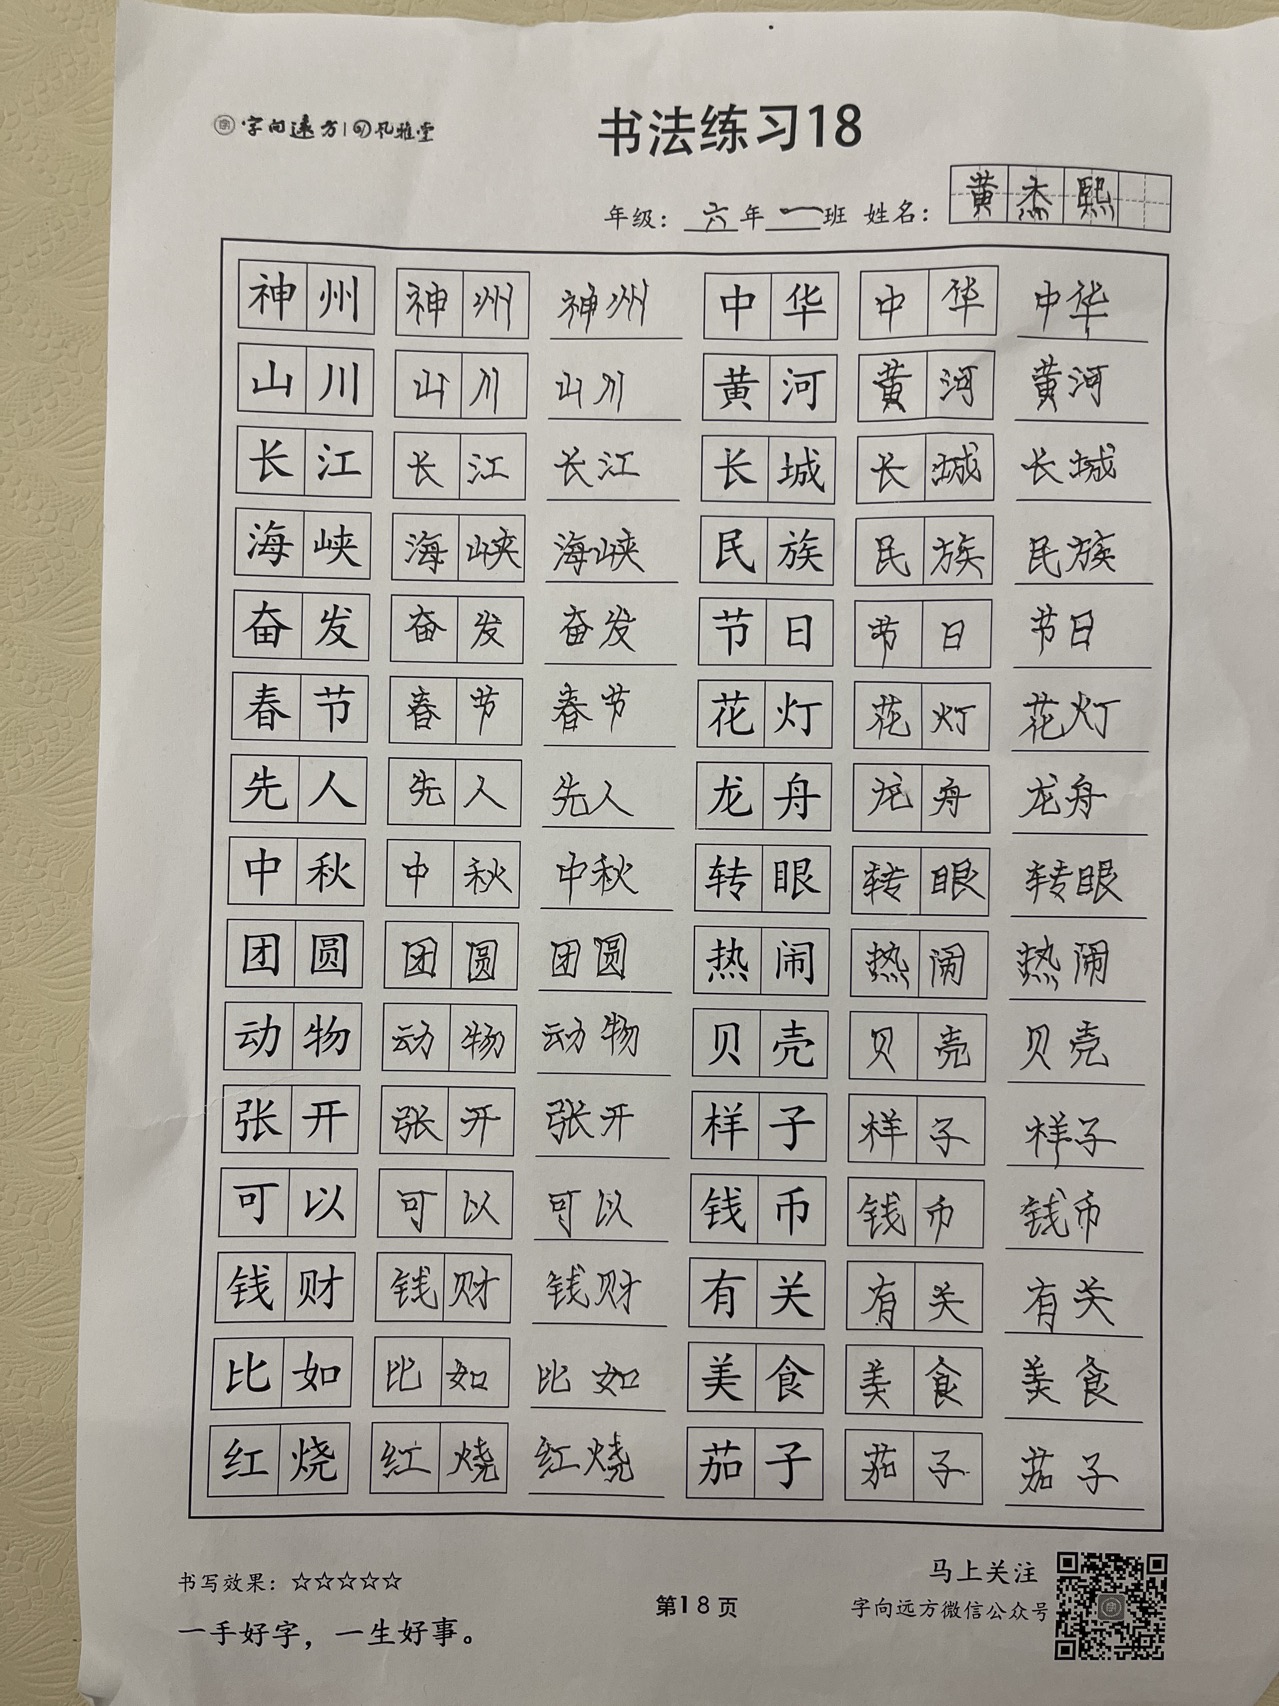 字向远方 风雅堂
书法练习18
年级：六年一班 姓名：黄杰熙
神州 神州 神州 中华 中华 中华
山川 山川 山川 黄河 黄河 黄河
长江 长江 长江 长城 长城 长城
海峡 海峡 海峡 民族 民族 民族
奋发 奋发 奋发 节日 节日 节日
春节 春节 春节 花灯 花灯 花灯
先人 先人 先人 龙舟 龙舟 龙舟
中秋 中秋 中秋 转眼 转眼 转眼
团圆 团圆 团圆 热闹 热闹 热闹
动物 动物 动物 贝壳 贝壳 贝壳
张开 张开 张开 样子 样子 样子
可以 可以 可以 钱币 钱币 钱币
钱财 钱财 钱财 有关 有关 有关
比如 比如 比如 美食 美食 美食
红烧 红烧 红烧 茄子 茄子 茄子
书写效果：☆☆☆☆☆
一手好字，一生好事。
第18页
马上关注
字向远方微信公众号